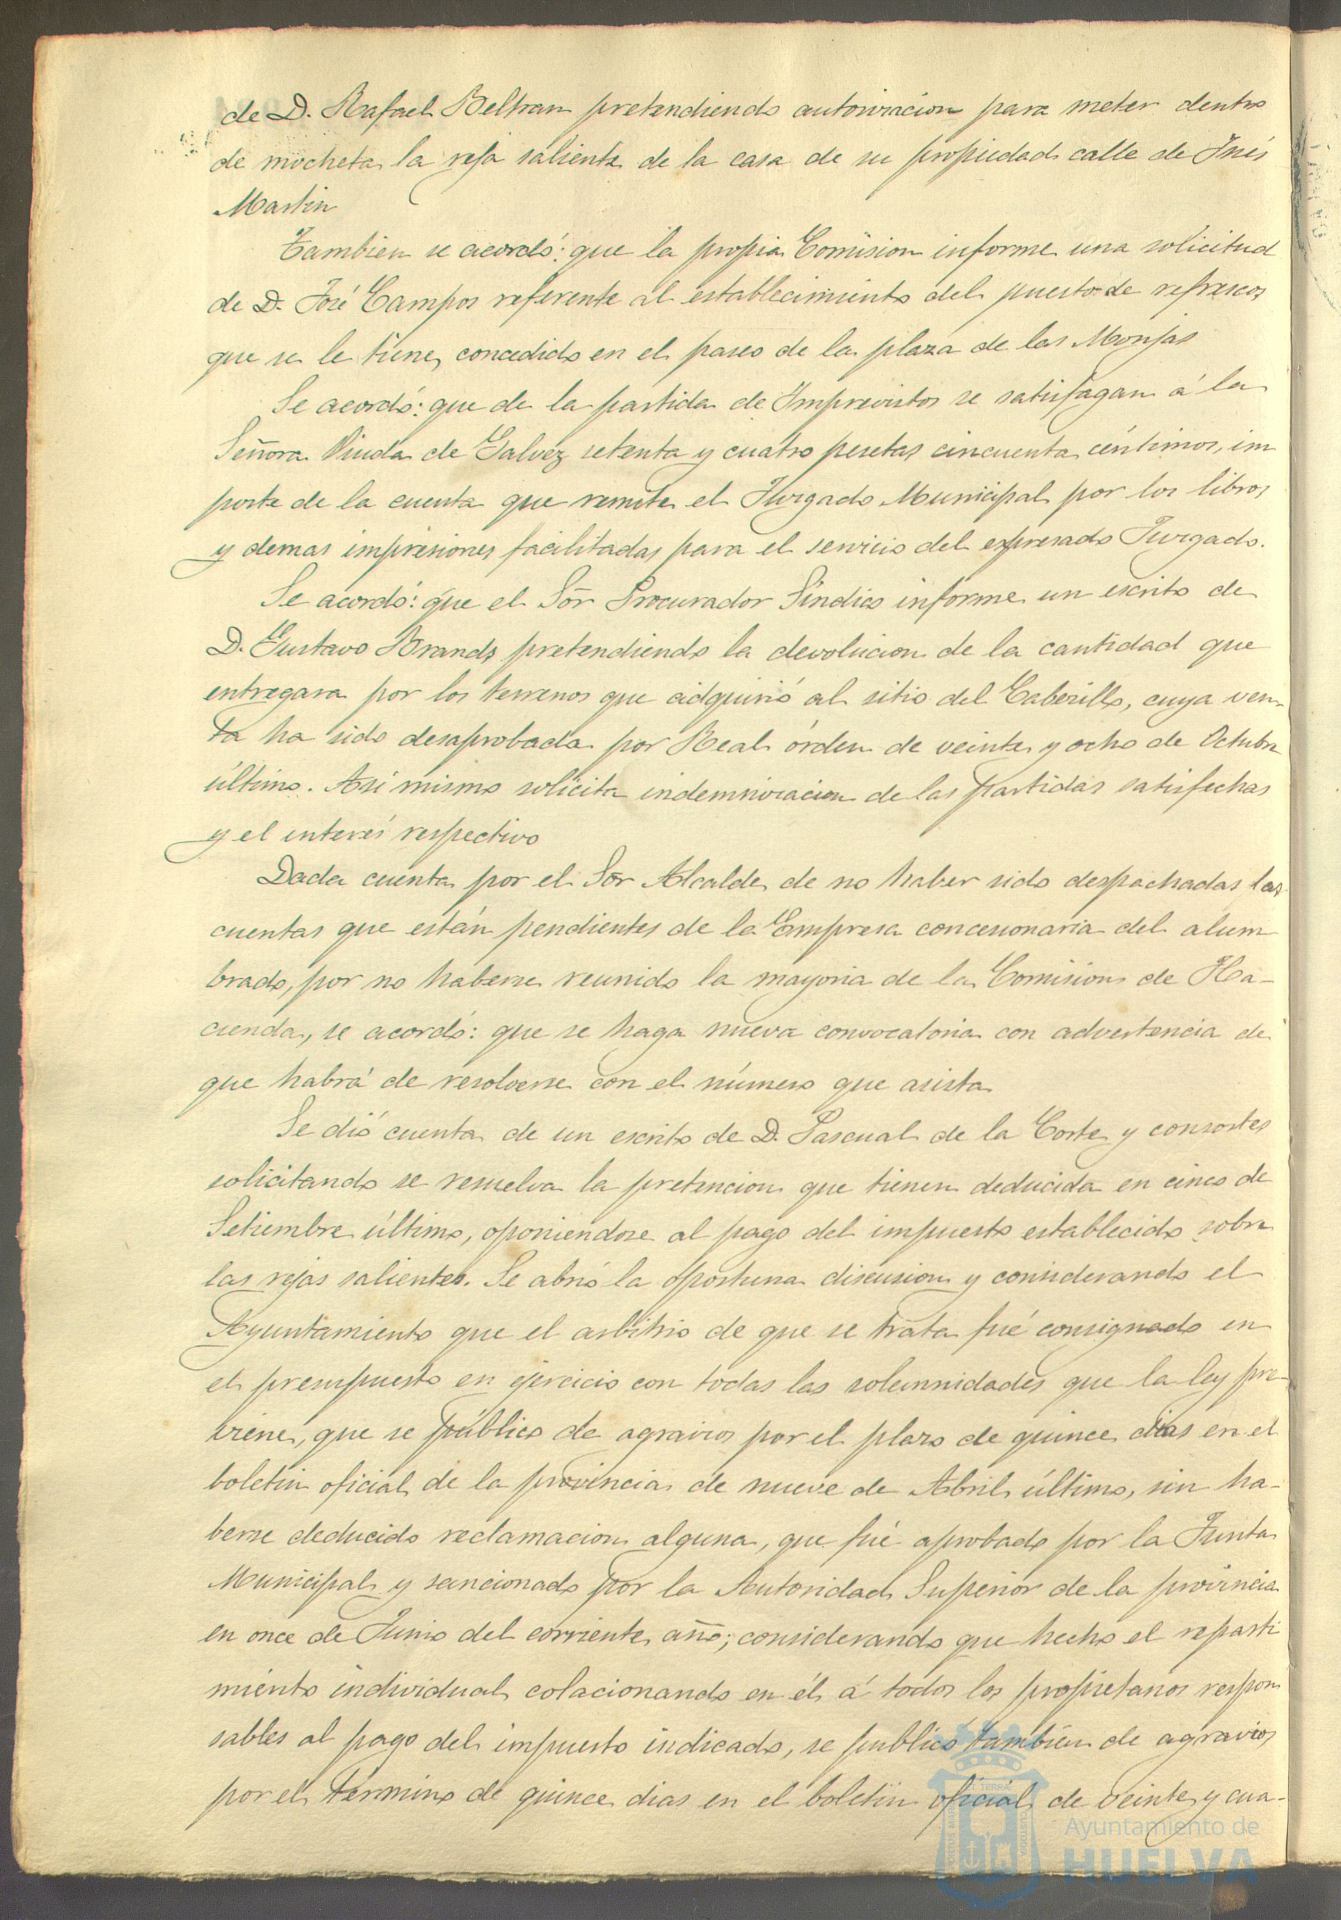 de D. Rafael Beltran pretendiendo autorizacion para meter dentro
de mocheta la reja saliente de la casa de su propiedad calle de Inés
Martin
Tambien se acordó: que la propia Comision informe una solicitud
de D. José Campos referente al establecimiento del puesto de refrescos
que se le tiene concedido en el paseo de la plaza de las Monjas
Se acordó: que de la partida de Imprevistos se satisfagan á la
Señora Viuda de Galvez setenta y cuatro pesetas cincuenta céntimos, im
porte de la cuenta que remite el Juzgado Municipal por los libros
y demas impresiones facilitadas para el servicio del expresado Juzgado.
Se acordó: que el Sõr Procurador Síndico informe un escrito de
D. Gustavo Brands pretendiendo la devolucion de la cantidad que
entregara por los terrenos que adquirió al sitio del Cabezillo, cuya ven-
ta ha sido desaprobada por Real órden de veinte y ocho de Octubre
último. Así mismo solicita indemnizacion de las partidas satisfechas
y el interés respectivo
Dada cuenta por el Sõr Alcalde de no haber sido despachadas las
cuentas que están pendientes de la Empresa concesionaria del alum
brado, por no haberse reunido la mayoria de la Comision de Ha-
cienda, se acordó: que se haga nueva convocatoria con advertencia de
que habrá de resolverse con el número que asista
Se dió cuenta de un escrito de D. Pascual de la Corte y consortes
solicitando se resuelva la pretencion que tienen deducida en cinco de
Setiembre último, oponiendose al pago del impuesto establecido sobre
las rejas salientes. Se abrió la oportuna discusion y considerando el
Ayuntamiento que el arbitrio de que se trata fué consignado en
el presupuesto en ejercicio con todas las solemnidades que la ley pre-
viene, que se público de agravios por el plazo de quince dias en el
boletin oficial de la provincia de nueve de Abril último, sin ha-
berse deducido reclamacion alguna, que fué aprobado por la Junta
Municipal y sancionado por la Autoridad Superior de la provincia
en once de Junio del corriente año; considerando que hecho el reparti
miento individual colacionando en él á todos los propietarios respon
sables al pago del impuesto indicado, se publicó tambien de agravios
por el término de quince dias en el boletin oficial de veinte y cua-
Ayuntamiento de
HUELVA